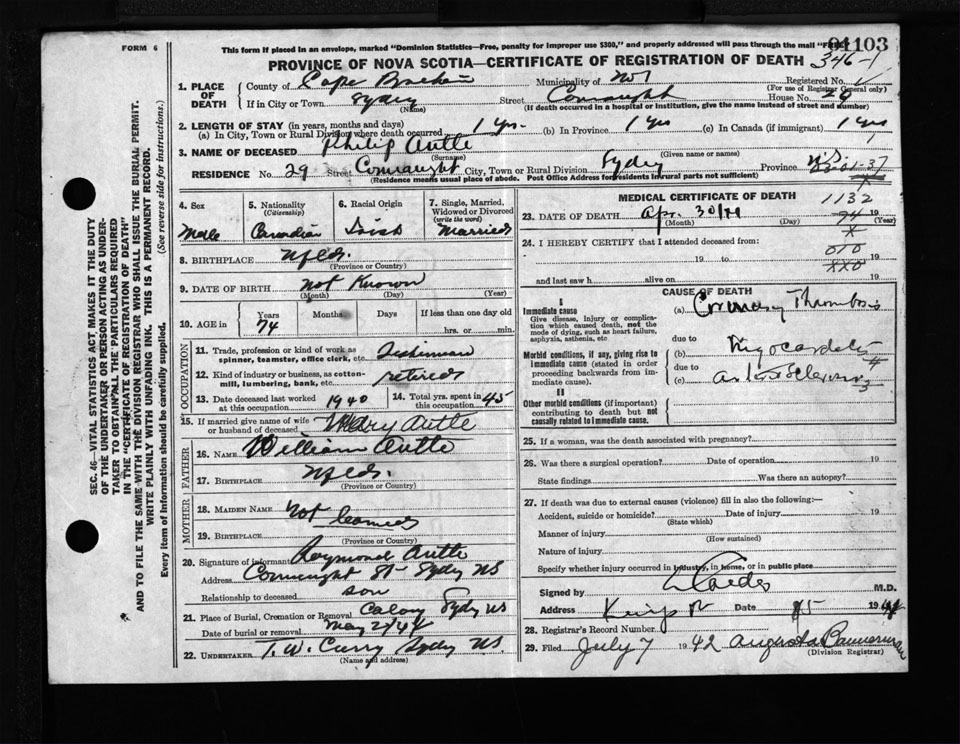 FORM 6
This form if placed in an envelope, marked "Dominion Statistics—Free, penalty for improper use $300," and properly addressed will pass through the mail
01103
PROVINCE OF NOVA SCOTIA—CERTIFICATE OF REGISTRATION OF DEATH
346-1
1. PLACE OF DEATH
County of Cape Breton
Municipality of No 1
Registered No.
(For use of Registrar General only)
If in City or Town Sydney
(Name)
Street Connaught House No. 29
(If death occurred in a hospital or institution, give the name instead of street and number)
2. LENGTH OF STAY (in years, months and days)
(a) In City, Town or Rural Division where death occurred 1 yr. (b) In Province 1 yrs (c) In Canada (if immigrant) 1 yrs
3. NAME OF DECEASED Philip Autle
(Surname) (Given name or names)
RESIDENCE No. 29 Street Connaught City, Town or Rural Division Sydney Province N.S.
(Residence means usual place of abode. Post Office Address for residents in rural parts not sufficient)
4. Sex
Male
5. Nationality
(Citizenship)
Canadian
6. Racial Origin
Irish
7. Single, Married, Widowed or Divorced
(write the word)
Married
8. BIRTHPLACE Nfld.
(Province or Country)
9. DATE OF BIRTH not Known
(Month) (Day) (Year)
10. AGE in
Years
74
Months
Days
If less than one day old
hrs. or min.
OCCUPATION
11. Trade, profession or kind of work as spinner, teamster, office clerk, etc. Fisherman
12. Kind of industry or business, as cotton-mill, lumbering, bank, etc. retired
13. Date deceased last worked at this occupation 1940
14. Total yrs. spent in this occupation 45
15. If married give name of wife or husband of deceased Mary Autle
FATHER
16. NAME William Autle
17. BIRTHPLACE Nfld.
(Province or Country)
MOTHER
18. MAIDEN NAME Not learned
19. BIRTHPLACE
(Province or Country)
20. Signature of informant Raymond Autle
Address Connaught St Sydney NS
Relationship to deceased son
21. Place of Burial, Cremation or Removal Calvary Sydney NS
Date of burial or removal May 2/42
22. UNDERTAKER T. W. Curry Sydney NS.
(Name and address)
MEDICAL CERTIFICATE OF DEATH
1132
23. DATE OF DEATH Apr. 30/42 19
(Month) (Day) (Year)
24. I HEREBY CERTIFY that I attended deceased from:
19 to 19
and last saw h alive on 19
CAUSE OF DEATH
I
Immediate cause
Give disease, injury or complication which caused death, not the mode of dying, such as heart failure, asphyxia, asthenia, etc
(a) Coronary Thrombosis
due to
Morbid conditions, if any, giving rise to immediate cause (stated in order proceeding backwards from immediate cause).
(b) Myocarditis
due to
(c) Arteriosclerosis
II
Other morbid conditions (if important) contributing to death but not causally related to immediate cause.
25. If a woman, was the death associated with pregnancy?
26. Was there a surgical operation? Date of operation 19
State findings Was there an autopsy?
27. If death was due to external causes (violence) fill in also the following:—
Accident, suicide or homicide? Date of injury 19
(State which)
Manner of injury
(How sustained)
Nature of injury
Specify whether injury occurred in industry, in home, or in public place
Signed by M.D.
Address Date 19
28. Registrar's Record Number
29. Filed July 7 1942 Augusta
(Division Registrar)
SEC. 46—VITAL STATISTICS ACT, MAKES IT THE DUTY OF THE UNDERTAKER OR PERSON ACTING AS UNDERTAKER TO OBTAIN ALL THE PARTICULARS REQUIRED IN THE "CERTIFICATE OF REGISTRATION OF DEATH" AND TO FILE THE SAME WITH THE DIVISION REGISTRAR WHO SHALL ISSUE THE BURIAL PERMIT.
WRITE PLAINLY WITH UNFADING INK. THIS IS A PERMANENT RECORD.
Every item of information should be carefully supplied. (See reverse side for instructions.)